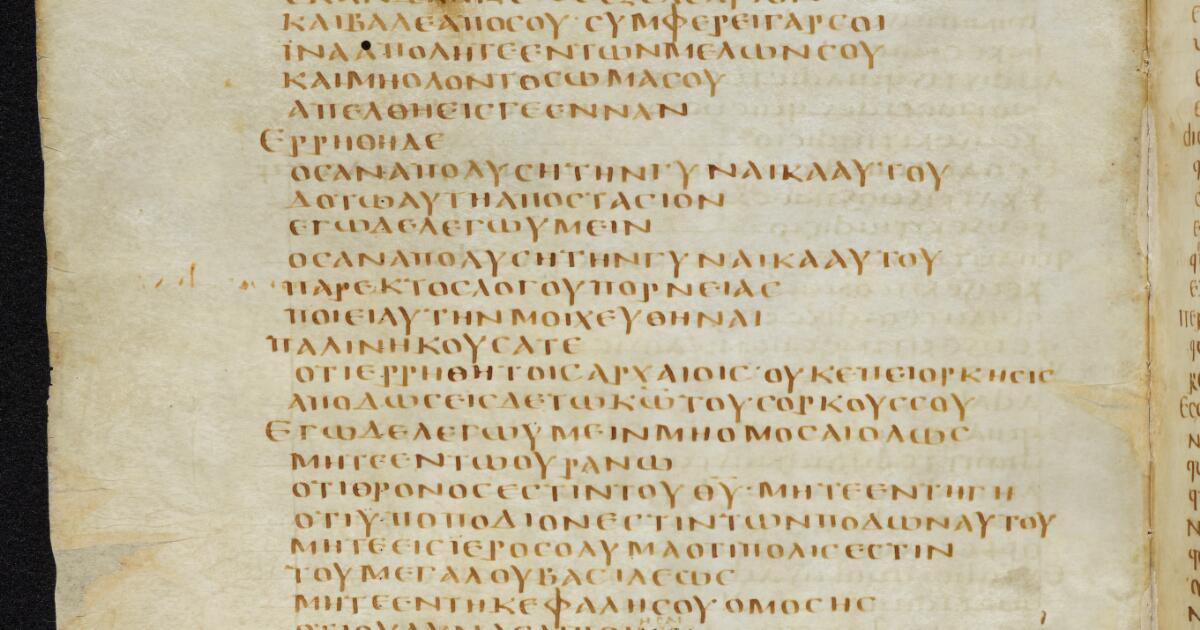 ΚΑΙΒΑΛΕΑΠΟСΟΥ·СΥΜΦΕΡΕΙΓΑΡСΟΙ
ΪΝΑΑΠΟΛΗΤΕΕΝΤΩΝΜΕΛΩΝСΟΥ
ΚΑΙΜΗΟΛΟΝΤΟСΩΜΑСΟΥ
ΑΠΕΛΘΗΕΙСΓΕΕΝΝΑΝ
ΕΡΡΗΘΗΔΕ
ΟСΑΝΑΠΟΛΥСΗΤΗΝΓΥΝΑΙΚΑΑΥΤΟΥ
ΔΟΤΩΑΥΤΗΑΠΟСΤΑСΙΟΝ
ΕΓΩΔΕΛΕΓΩΥΜΕΙΝ
ΟСΑΝΑΠΟΛΥСΗΤΗΝΓΥΝΑΙΚΑΑΥΤΟΥ
ΠΑΡΕΚΤΟСΛΟΓΟΥΠΟΡΝΕΙΑС
ΠΟΙΕΙΑΥΤΗΝΜΟΙΧΕΥΘΗΝΑΙ
ΠΑΛΙΝΗΚΟΥСΑΤΕ
ΟΤΙΕΡΡΗΘΗΤΟΙСΑΡΧΑΙΟΙС·ΟΥΚΕΠΕΙΟΡΚΗСΙС
ΑΠΟΔΩСΕΙСΔΕΤΩΚΩΤΟΥСΟΡΚΟΥССΟΥ
ΕΓΩΔΕΛΕΓΩΥΜΕΙΝΜΗΟΜΟСΑΙΟΛΩС
ΜΗΤΕΕΝΤΩΟΥΡΑΝΩ
ΟΤΙΘΡΟΝΟСΕСΤΙΝΤΟΥΘΥ·ΜΗΤΕΕΝΤΗΓΗ
ΟΤΙΥΠΟΠΟΔΙΟΝΕСΤΙΝΤΩΝΠΟΔΩΝΑΥΤΟΥ
ΜΗΤΕΕΙСΪΕΡΟСΟΛΥΜΑΟΤΙΠΟΛΙСΕСΤΙΝ
ΤΟΥΜΕΓΑΛΟΥΒΑСΙΛΕΩС
ΜΗΤΕΕΝΤΗΚΕΦΑΛΗСΟΥΟΜΟСΗС